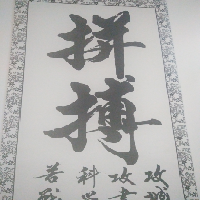 拼搏
攻城
攻书
科学
苦战